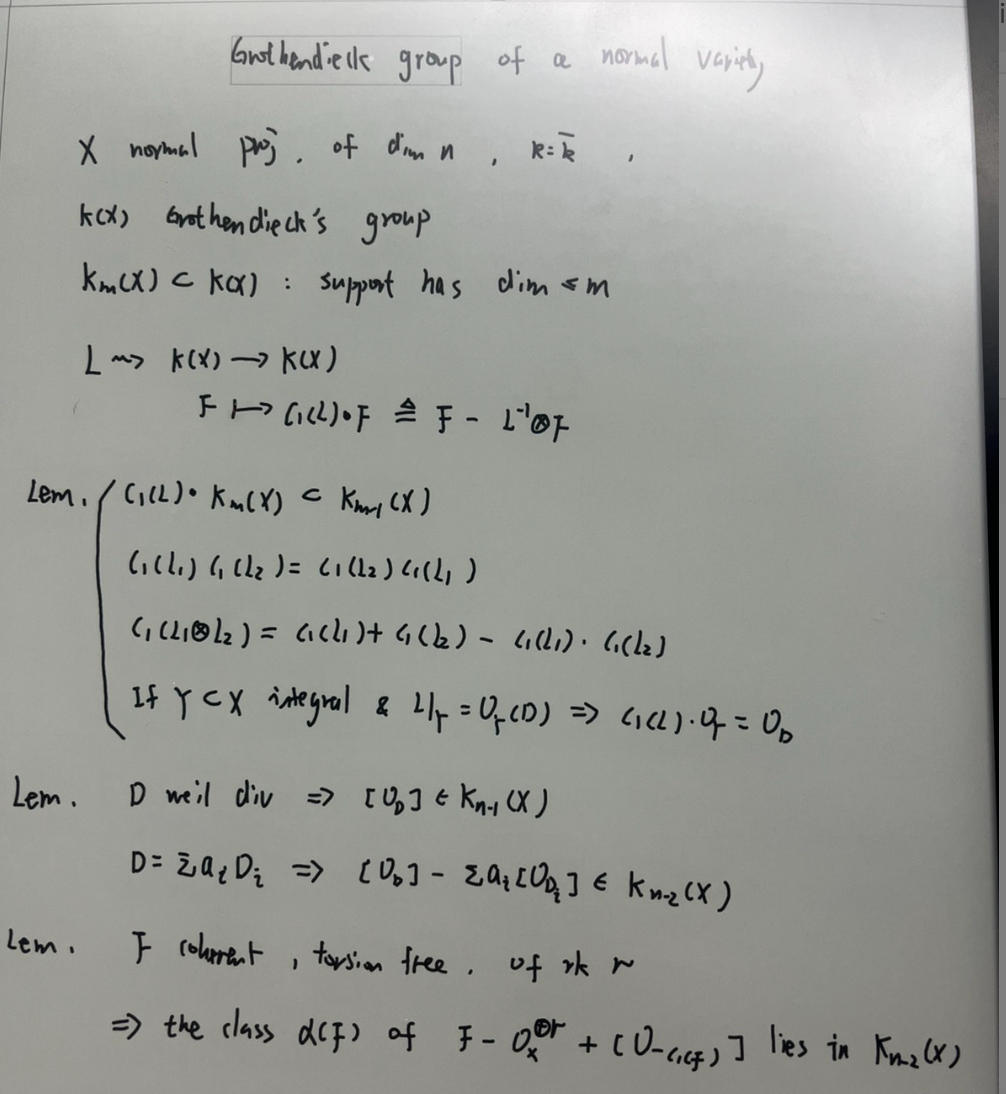 Grothendieck group of a normal variety
X normal proj. of dim n, k=k̄,
K(X) Grothendieck's group
K_m(X) ⊂ K(X) : support has dim ≤ m
L ⇝ K(X) → K(X)
F ↦ C₁(L)·F ≜ F - L⁻¹⊗F
Lem. C₁(L)· K_m(X) ⊂ K_{m-1}(X)
C₁(L₁) C₁(L₂) = C₁(L₂) C₁(L₁)
C₁(L₁⊗L₂) = C₁(L₁) + C₁(L₂) - C₁(L₁)· C₁(L₂)
If Y ⊂ X integral & L|_Y = O_Y(D) ⇒ C₁(L)·O_Y = O_D
Lem. D weil div ⇒ [O_D] ∈ K_{n-1}(X)
D = Σa_i D_i ⇒ [O_D] - Σa_i [O_{D_i}] ∈ K_{n-2}(X)
Lem. F coherent, torsion free. of rk r
⇒ the class α(F) of F - O_X^{⊕r} + [O_{-C₁(F)}] lies in K_{n-2}(X)